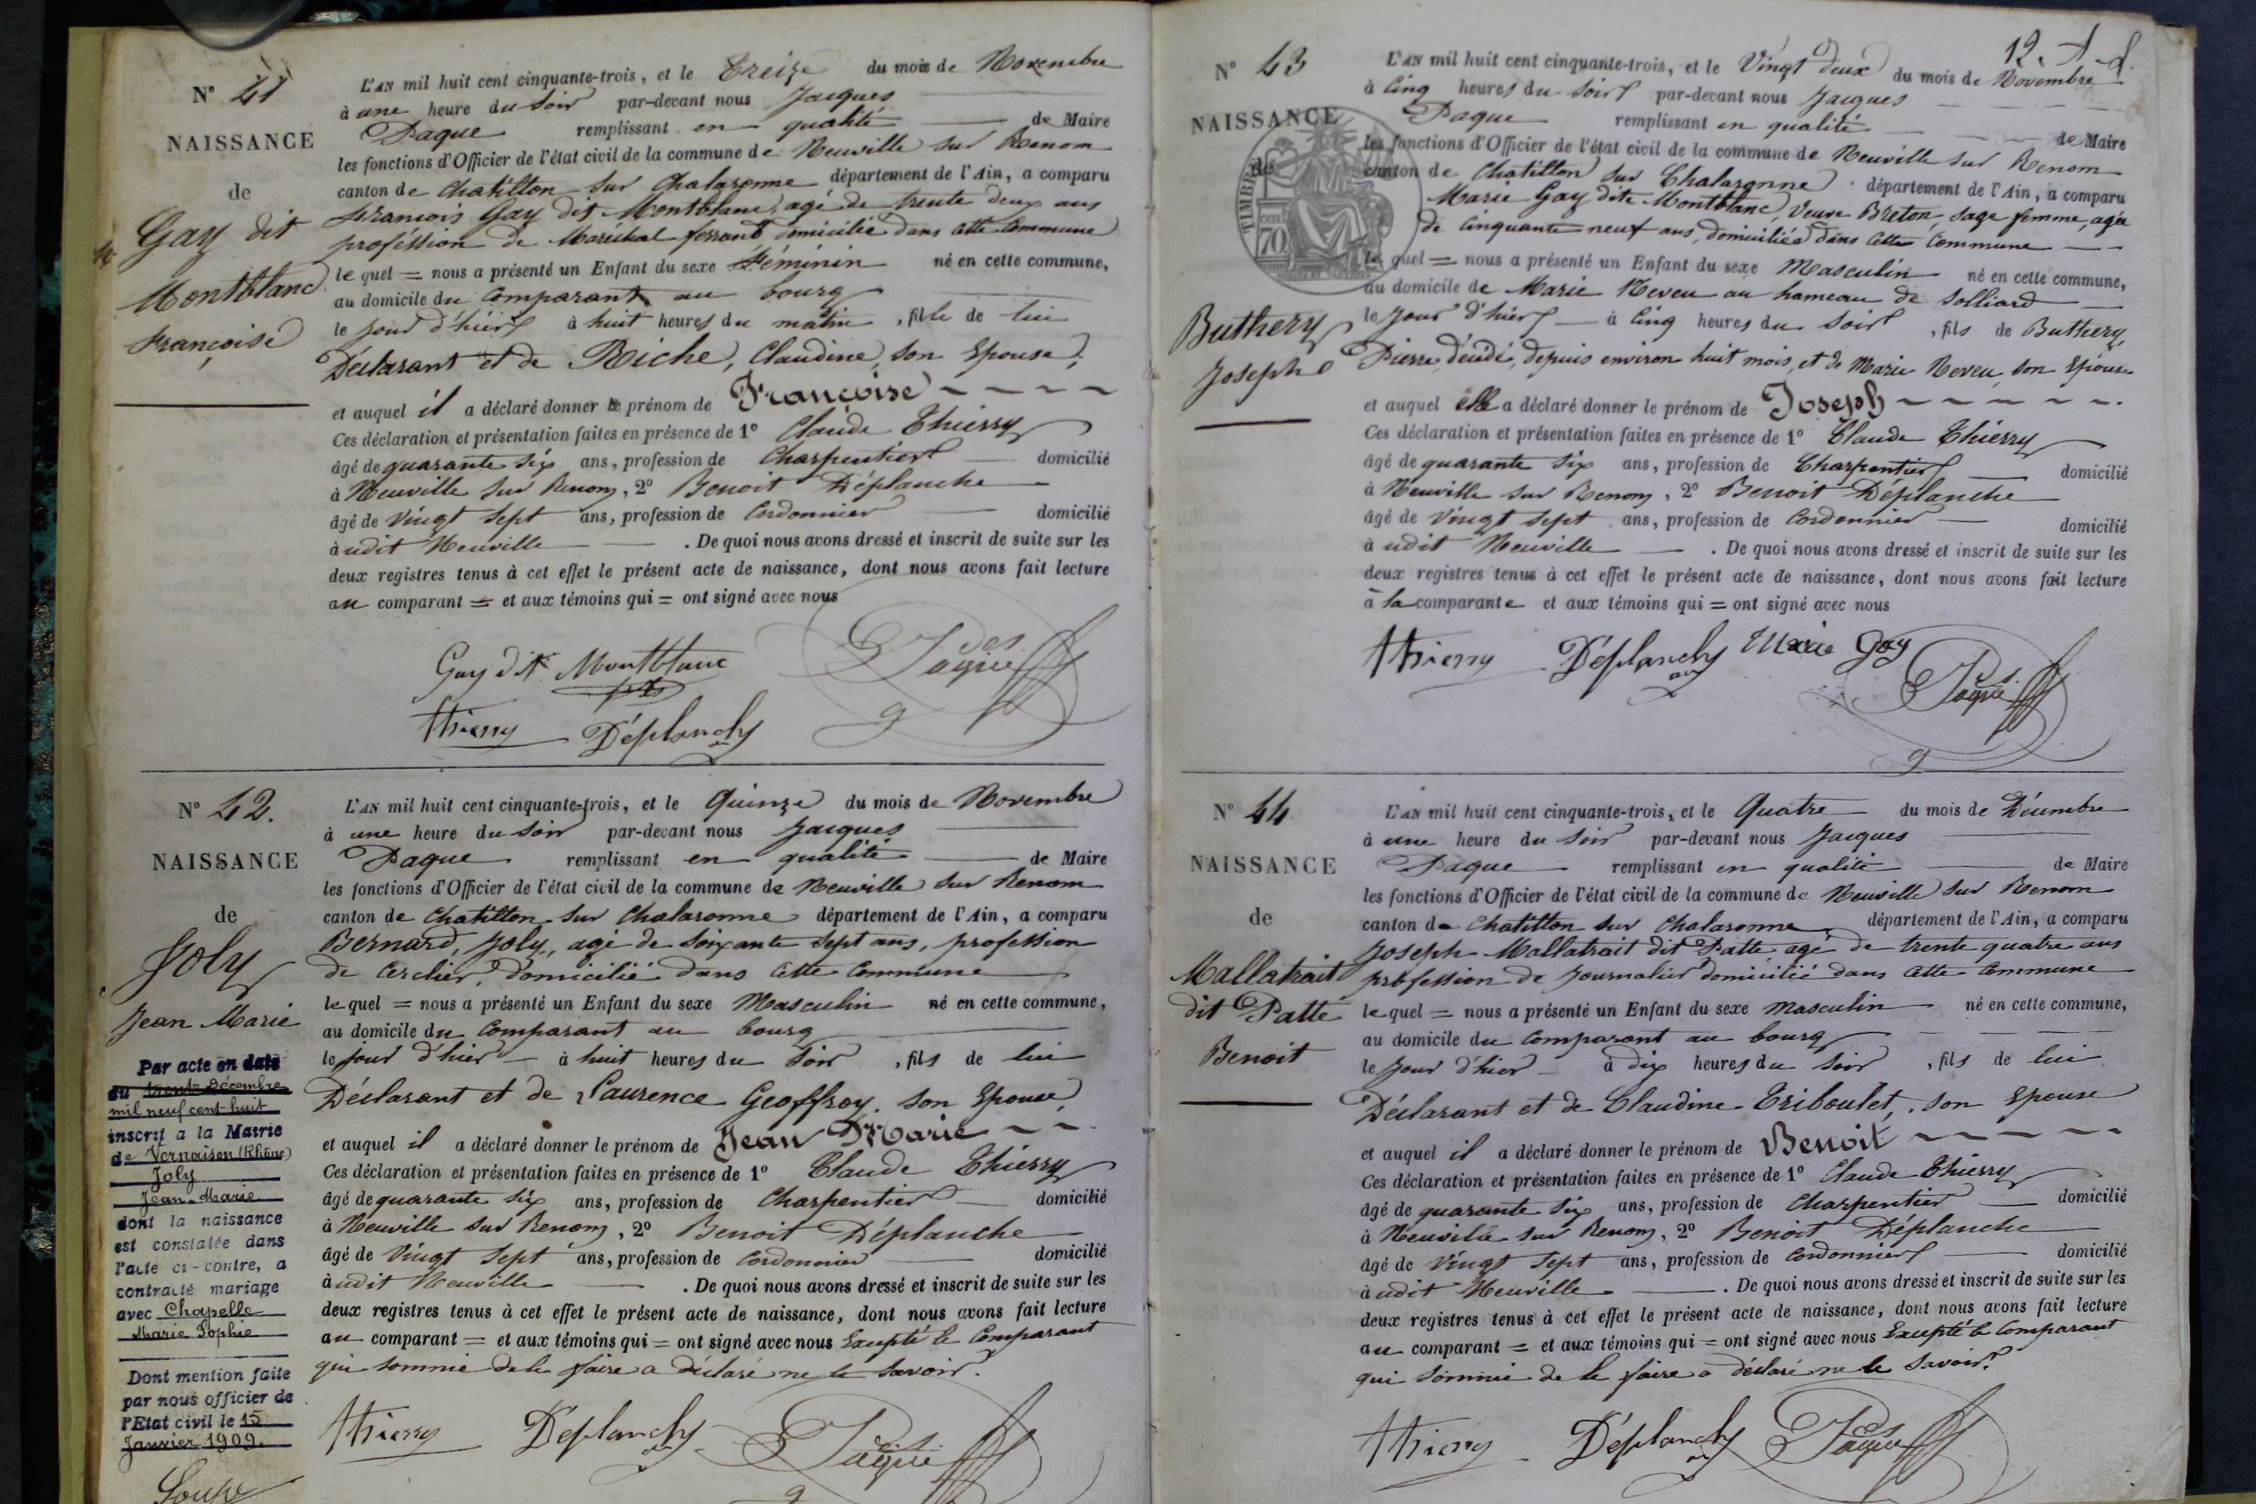 N° 41
NAISSANCE
de
Gay dit
Montblanc
Françoise
L'AN mil huit cent cinquante-trois, et le Treize du mois de Novembre
à une heure du soir par-devant nous Jacques
Paque remplissant en qualité de Maire
les fonctions d'Officier de l'état civil de la commune de Neuville sur Renom
canton de Chatillon sur Chalaronne département de l'Ain, a comparu
François Gay dit Montblanc, agé de trente deux ans
proféssion de Maréchal ferrant domicilié dans cette Commune
le quel = nous a présenté un Enfant du sexe Féminin né en cette commune,
au domicile du Comparant au bourg
le jour d'hier à huit heures du matin, fille de lui
Déclarant et de Riche, Claudine, son Epouse,
et auquel il a déclaré donner le prénom de Françoise
Ces déclaration et présentation faites en présence de 1° Claude Thierry
âgé de quarante six ans, profession de Charpentier domicilié
à Neuville sur Renom, 2° Benoit Déplanche
âgé de vingt sept ans, profession de Cordonnier domicilié
à udit Neuville . De quoi nous avons dressé et inscrit de suite sur les
deux registres tenus à cet effet le présent acte de naissance, dont nous avons fait lecture
au comparant = et aux témoins qui = ont signé avec nous
Gay dit Montblanc
Paque
Thierry Déplanche
N° 42.
NAISSANCE
de
Joly
Jean Marie
Par acte en date
du trente Décembre
mil neuf cent huit
inscrit a la Mairie
de Vernaison (Rhône)
Joly
Jean-Marie
dont la naissance
est constatée dans
l'acte ci-contre, a
contracté mariage
avec Chapelle
Marie Sophie
Dont mention faite
par nous officier de
l'Etat civil le 15
Janvier 1909.
L'AN mil huit cent cinquante-trois, et le Quinze du mois de Novembre
à une heure du soir par-devant nous Jacques
Paque remplissant en qualité de Maire
les fonctions d'Officier de l'état civil de la commune de Neuville sur Renom
canton de Chatillon sur Chalaronne département de l'Ain, a comparu
Bernard, Joly, agé de soixante sept ans, profession
de Cerclier, domicilié dans cette Commune
le quel = nous a présenté un Enfant du sexe Masculin né en cette commune,
au domicile du Comparant au bourg
le jour d'hier à huit heures du soir, fils de lui
Déclarant et de Laurence Geoffroy, son Epouse,
et auquel il a déclaré donner le prénom de Jean Marie
Ces déclaration et présentation faites en présence de 1° Claude Thierry
âgé de quarante six ans, profession de Charpentier domicilié
à Neuville sur Renom, 2° Benoit Déplanche
âgé de vingt sept ans, profession de Cordonnier domicilié
à udit Neuville . De quoi nous avons dressé et inscrit de suite sur les
deux registres tenus à cet effet le présent acte de naissance, dont nous avons fait lecture
au comparant = et aux témoins qui = ont signé avec nous Excepté le Comparant
qui sommé de le faire a déclaré ne le savoir.
Thierry Déplanche Paque
12.
N° 43
NAISSANCE
de
TIMBRE
70
Buthery
Joseph
L'AN mil huit cent cinquante-trois, et le Vingt deux du mois de Novembre
à Cinq heures du soir par-devant nous Jacques
Paque remplissant en qualité de Maire
les fonctions d'Officier de l'état civil de la commune de Neuville sur Renom
canton de Chatillon sur Chalaronne département de l'Ain, a comparu
Marie Gay dite Montblanc, Veuve Breton, sage femme, agée
de Cinquante neuf ans, domiciliée dans cette Commune
le quel = nous a présenté un Enfant du sexe Masculin né en cette commune,
au domicile de Marie Neveu au hameau de Solliard
le jour d'hier à Cinq heures du soir, fils de Buthery,
Pierre, décédé, depuis environ huit mois, et de Marie Neveu, son Epouse
et auquel elle a déclaré donner le prénom de Joseph
Ces déclaration et présentation faites en présence de 1° Claude Thierry
âgé de quarante six ans, profession de Charpentier domicilié
à Neuville sur Renom, 2° Benoit Déplanche
âgé de Vingt sept ans, profession de Cordonnier domicilié
à udit Neuville . De quoi nous avons dressé et inscrit de suite sur les
deux registres tenus à cet effet le présent acte de naissance, dont nous avons fait lecture
à la comparante et aux témoins qui = ont signé avec nous
Thierry Déplanche Marie Gay
Paque
N° 44
NAISSANCE
de
Mallatrait
dit Patte
Benoit
L'AN mil huit cent cinquante-trois, et le Quatre du mois de Décembre
à une heure du soir par-devant nous Jacques
Paque remplissant en qualité de Maire
les fonctions d'Officier de l'état civil de la commune de Neuville sur Renom
canton de Chatillon sur Chalaronne département de l'Ain, a comparu
Joseph Mallatrait dit Patte, agé de trente quatre ans
profession de Journalier domicilié dans cette Commune
le quel = nous a présenté un Enfant du sexe Masculin né en cette commune,
au domicile du Comparant au bourg
le jour d'hier à dix heures du soir, fils de lui
Déclarant et de Claudine Triboulet, son Epouse
et auquel il a déclaré donner le prénom de Benoit
Ces déclaration et présentation faites en présence de 1° Claude Thierry
âgé de quarante six ans, profession de Charpentier domicilié
à Neuville sur Renom, 2° Benoit Déplanche
âgé de Vingt sept ans, profession de Cordonnier domicilié
à udit Neuville . De quoi nous avons dressé et inscrit de suite sur les
deux registres tenus à cet effet le présent acte de naissance, dont nous avons fait lecture
au comparant = et aux témoins qui = ont signé avec nous Excepté le Comparant
qui sommé de le faire a déclaré ne le savoir.
Thierry Déplanche Paque